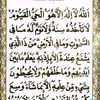 اَللّٰهُ لَاۤ اِلٰهَ اِلَّا هُوَ الْحَیُّ الْقَیُّوْمُ
لَا تَاْخُذُهٗ سِنَةٌ وَّلَا نَوْمٌ لَهٗ مَا فِی
السَّمٰوٰتِ وَمَا فِی الْاَرْضِ مَنْ ذَا الَّذِیْ
یَشْفَعُ عِنْدَهٗۤ اِلَّا بِاِذْنِهٖ یَعْلَمُ مَا بَیْنَ
اَیْدِیْهِمْ وَمَا خَلْفَهُمْ وَلَا یُحِیْطُوْنَ
بِشَیْءٍ مِّنْ عِلْمِهٖۤ اِلَّا بِمَا شَآءَ وَسِعَ